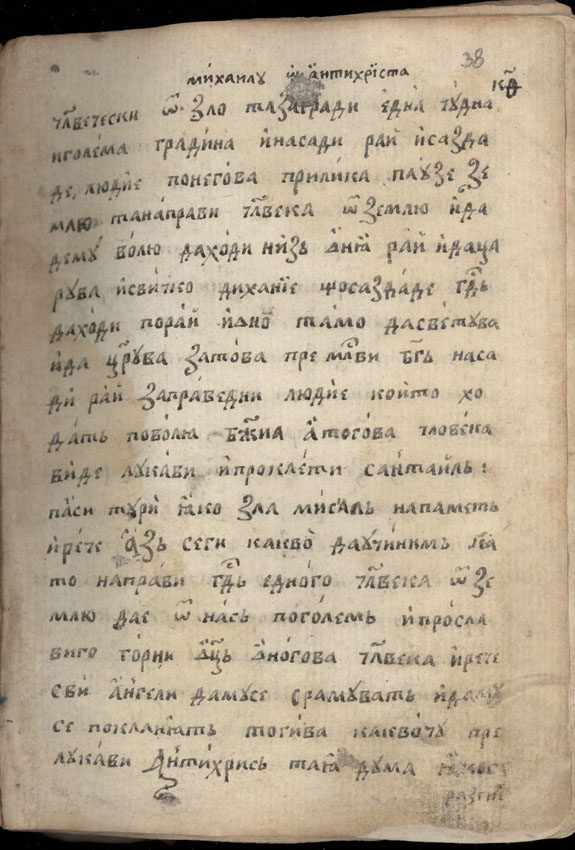 38
михаилу ѿ антихрїста
кд
чл҃вечески ѿ зло та загради една чудна
иголема градина и насади рай и сазда
де людїе по негова прилика па узе зе
млю та направи чл҃века ѿ землю и да
де му волю да ходи низь ѡнїꙗ рай и да ца
рува и светѡ диханїе що саздаде гд҃ь
да ходи по рай и ѡно тамо да светува
и да цр҃ува затова премл҃ви бг҃ь наса
ди рай за праведни людїе който хо
дать по волю бж҃иꙗ а тогова чловека
виде лукави и проклети сантаиль:
па си тури ꙗко зла мисаль на паметь
и рече азь сеги какво да учинимь
то направи гд҃ь едного чл҃века ѿ зе
млю да е ѿ нась поголемь и просла
виго горни ѿц҃ь оногова чл҃века и рече
сви ангели да му се срамувать и да му
се покланꙗть тогива какво чу пре
лукави антихрись таꙗ дума